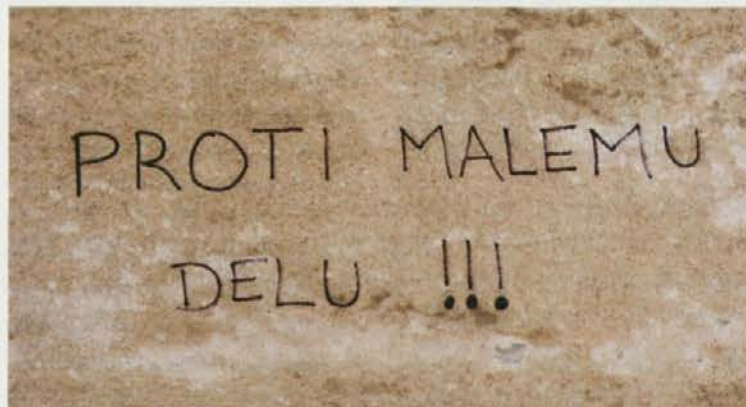 PROTI MALEMU
DELU !!!